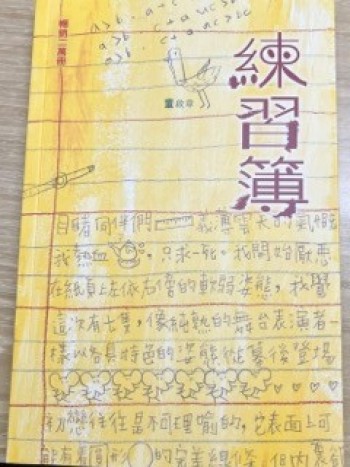 暢銷二萬冊
a>b
練習簿
董啟章
目睹同伴們義薄雲天的氣慨
我熱血，只求一死。我開始厭惡
在紙頁上左依右靠的軟弱姿態，我
這次有七隻，像純熟的舞台表演者一
樣以各具特色的姿態從幕後登場
初戀往往是不可理喻的，它表面上可
能有着圓形的完美線條，但內裏